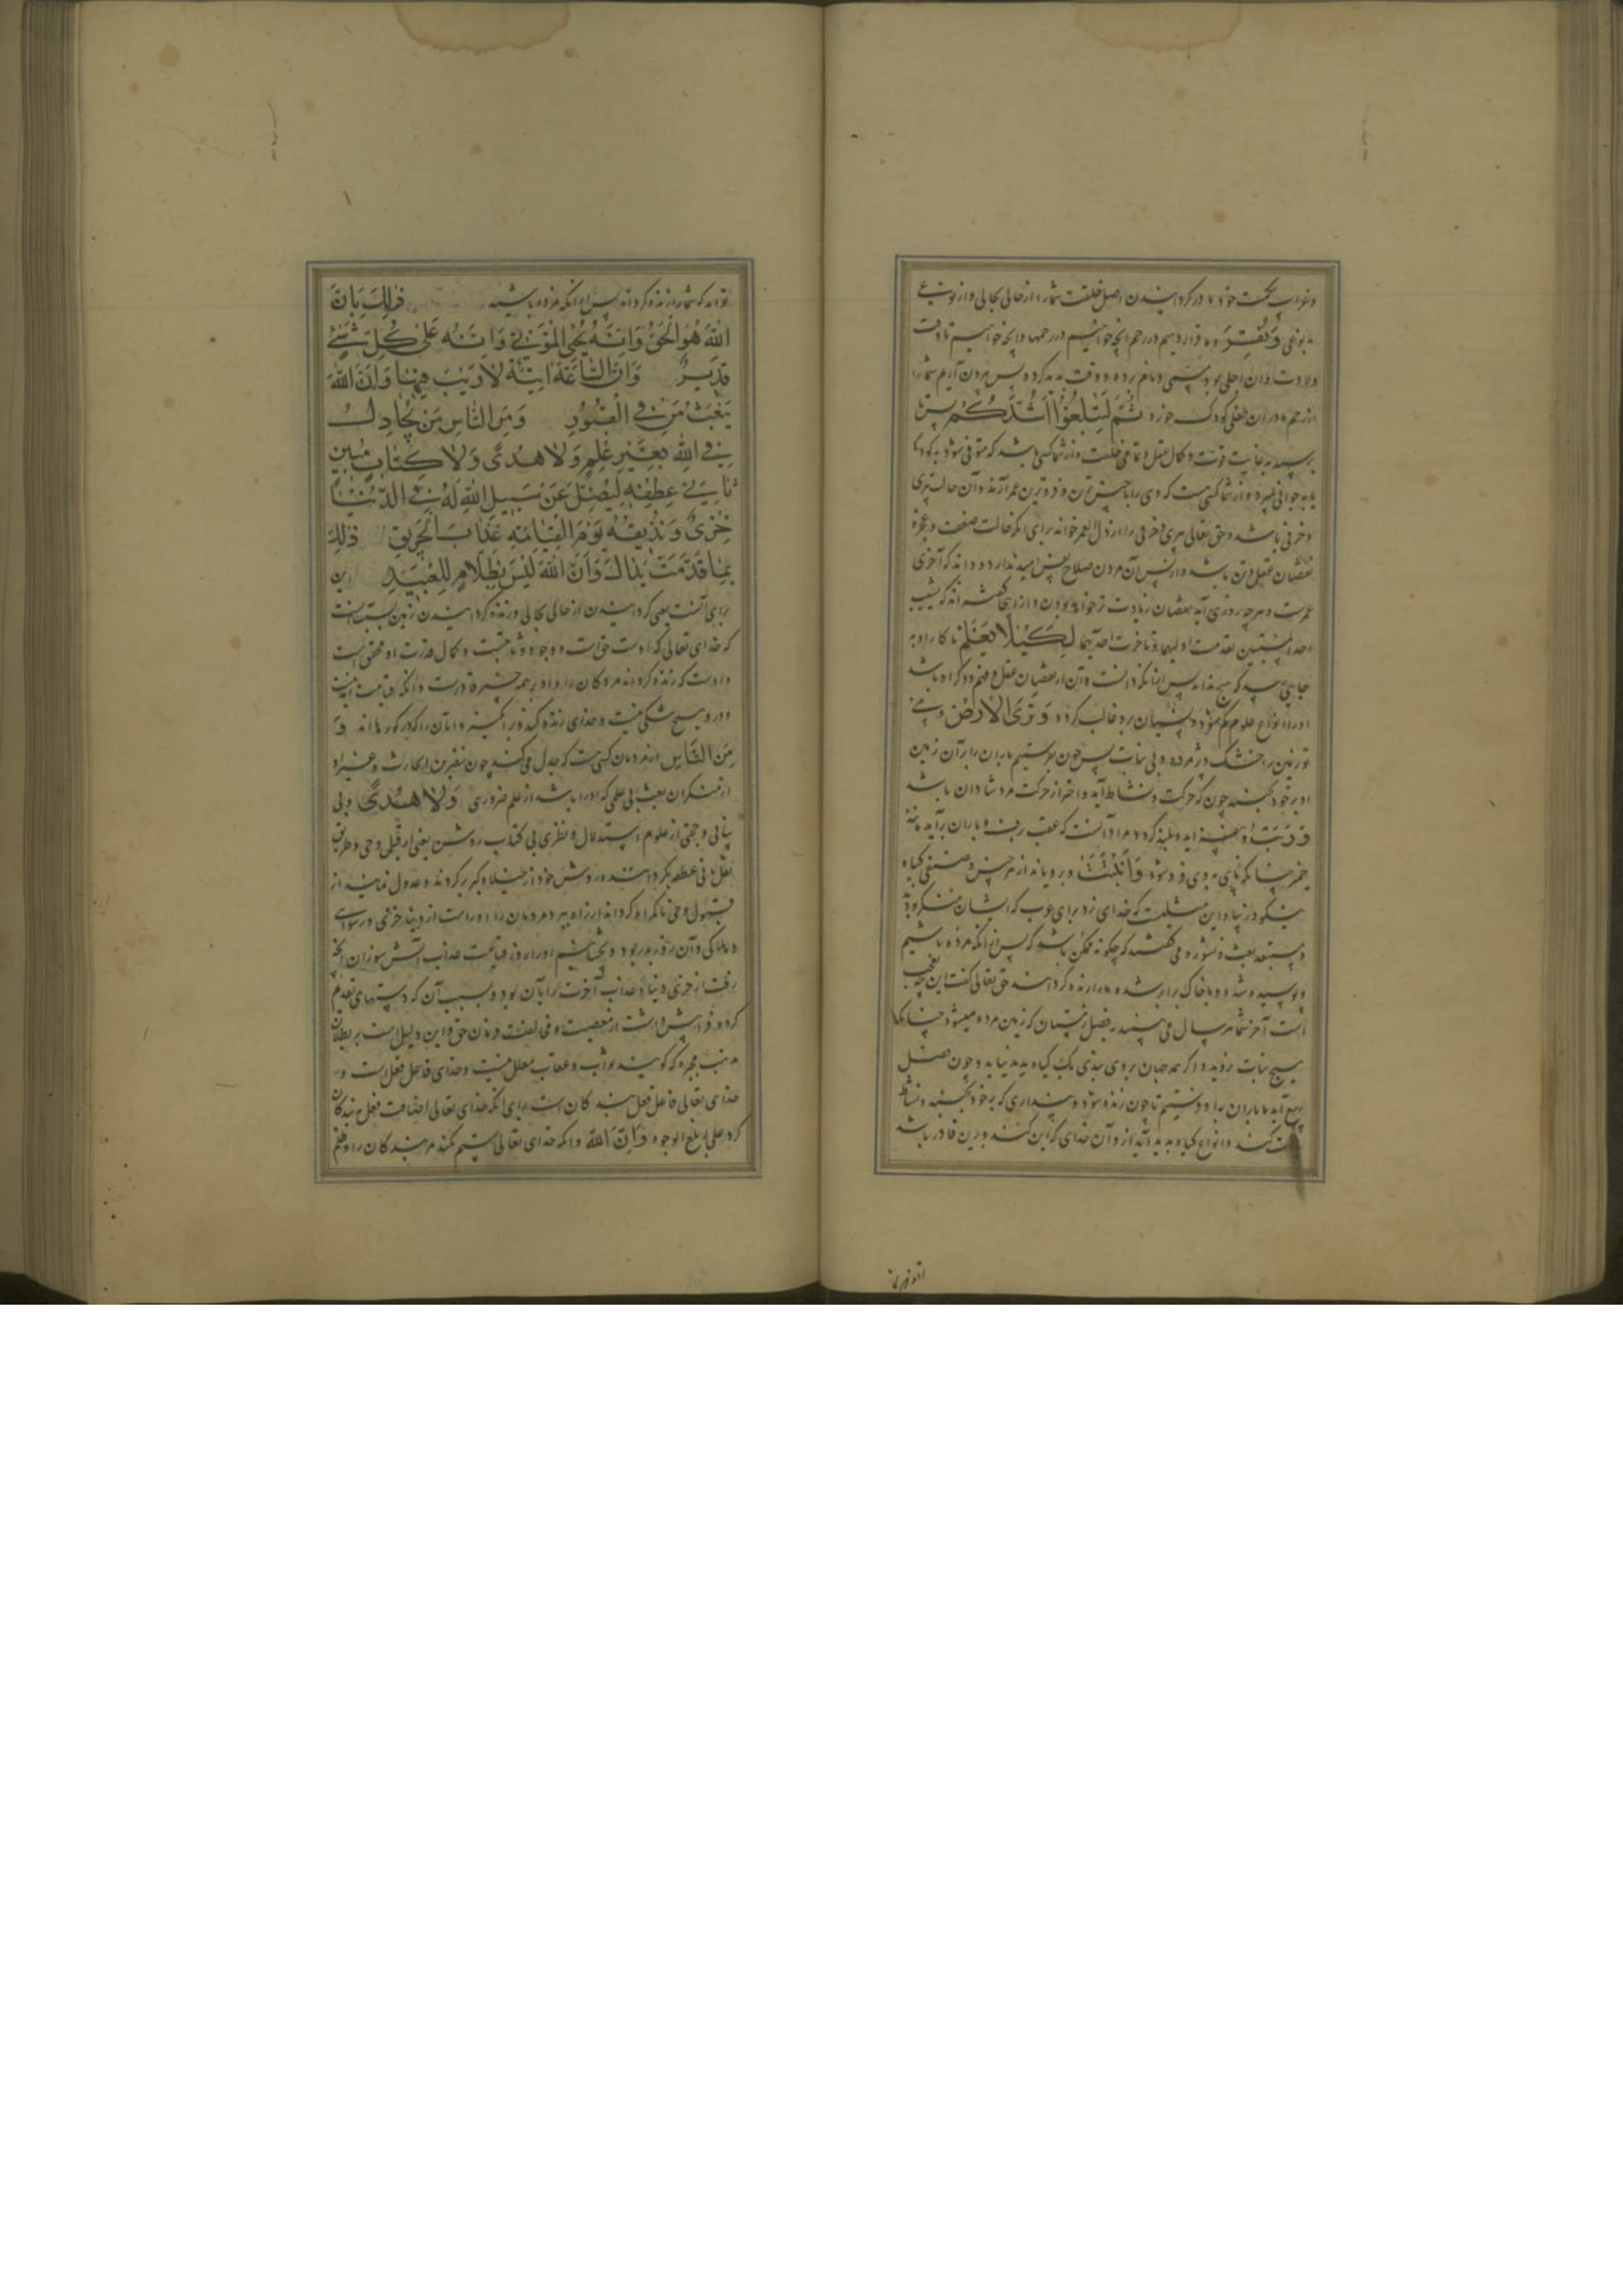 و غرایب حکمت خود ما در کردانیدن اصل خلقت شما را از حالی بحالی و از نوعی
بنوعی وَنُقِرُّ و ما قرار دهیم در رحم آنچه خواهیم در رحمها و آنچه خواهیم تا وقت
ولادت و آن اجلی بود مسمی و نام برده و وقت پدید کرده و پس بیرون آریم شما را
از رحم مادران طفلی کودک خورد ثُمَّ لِتَبْلُغُوا أَشُدَّكُمْ پس تا
برسید به غایت قوت و کمال عقل و تمامی خلقت و از شما کسی باشد که متوفی شود به کودکی
یا به جوانی بمیرد و از شما کسی هست که وی را با خسیس ترین و فروترین عمر آرند و آن حالت پیری
و خرفی باشد و حق تعالی پیری و خرفی را ارذل العمر خواند برای آنکه حالت ضعف و عجز و
نقصان عقل و تن باشد و از پس آن مردن صلاح پیش امید ندارد و داند که آخری
عمرست و هر چه روزی آید نقصان زیادت تر خواهد بودن و از اینجا گفته اند که شیب
احد المنیتین تقدمت اولیهما و تاخرت احدیهما لِكَيْلَا يَعْلَمَ تا کار او به
جایی رسد که هیچ نداند پس از آنکه دانست و آن از نقصان عقل و فهم و ذکر او باشد
او را انواع علوم کم شود و نسیان برو غالب کردد وَتَرَى الْأَرْضَ و می بینی
تو زمین را خشک و پژمرده و بی نبات پس چون بفرستیم باران را بر آن زمین
او بر خود بجنبد چون که حرکت و نشاط آید و اهتزاز حرکت مرد شادان باشد
وَرَبَتْ و بیفزاید و بلند کردد و مراد آنست که عقب برف و باران برآید مانند
خمیر چنانکه پای به وی فرو شود وَأَنْبَتَتْ و برویاند از هر جنس و صنفی کیاه
نیکو و زیبا و این مثلیست که خدای زد برای عرب که ایشان منکر بودند
و مستبعد بعث و نشور و می گفتند که چگونه ممکن باشد که پس از آنکه مرده باشیم
و پوسیده شده و با خاک برابر شده ما را زنده کردانند حق تعالی گفت این چه عجب
است آخر شما هر سال می بینید به فصل زمستان که زمین مرده میشود چنانکه
هیچ نبات نروید و اگر همه جهان بروی بیزی یک کیاه پدید نیاید و چون فصل
ربیع آید ما باران بدو فرستیم تا چون زنده شود و پنداری که بر خود بجنبد و نشاط
کند و انواع کیاه پدید آید از و آن خدای که این کند برین قادر باشد
تواند که شما را زنده کرداند پس از آنکه مرده باشید ذَلِكَ بِأَنَّ
اللَّهَ هُوَ الْحَقُّ وَأَنَّهُ يُحْيِي الْمَوْتَى وَأَنَّهُ عَلَى كُلِّ شَيْءٍ
قَدِيرٌ وَأَنَّ السَّاعَةَ آتِيَةٌ لَا رَيْبَ فِيهَا وَأَنَّ اللَّهَ
يَبْعَثُ مَنْ فِي الْقُبُورِ وَمِنَ النَّاسِ مَنْ يُجَادِلُ
فِي اللَّهِ بِغَيْرِ عِلْمٍ وَلَا هُدًى وَلَا كِتَابٍ مُنِيرٍ
ثَانِيَ عِطْفِهِ لِيُضِلَّ عَنْ سَبِيلِ اللَّهِ لَهُ فِي الدُّنْيَا
خِزْيٌ وَنُذِيقُهُ يَوْمَ الْقِيَامَةِ عَذَابَ الْحَرِيقِ ذَلِكَ
بِمَا قَدَّمَتْ يَدَاكَ وَأَنَّ اللَّهَ لَيْسَ بِظَلَّامٍ لِلْعَبِيدِ این
برای آنست یعنی کردانیدن از حالی بحالی و زنده کردانیدن زمین بسبب آنست
که خدای تعالی که اوست حق است و وجود و ثابتست و کمال قدرت او محقق است
و اوست که زنده کرداند مردکان را و او بر همه چیز قادرست و آنکه قیامت آینده است
و درو هیچ شکی نیست و خدای زنده کند و برانگیزد آنان را که در گورها اند وَ
مِنَ النَّاسِ از مردمان کسی هست که جدل می کند چون نضر بن الحارث و غیر او
از منکران بعث بی علمی که او را باشد از علم ضروری وَلَا هُدًى و بی
بیانی و حجتی از علوم استدلال و نظری بی کتاب روشن یعنی از قبل وحی و طریق
نقل ثانی عطفه بکردانیده دوش خود از خیلا و کبر بر کردند و عدول نمایند از
قبول وحی تا کمراه کرداند از راه بیرد مردمان را او راست از دنیا خزی و رسوایی
و هلاکی و آن روز بدر بود و بچشانیم او را روز قیامت عذاب آتش سوزان آنچه
رفت از خزی دنیا و عذاب آخرت برای آن بود و بسبب آن که دستهای تو تقدیم
کرد و فراپیش داشت از معصیت و مخالفت فرمان حق و این دلیل است بر بطلان
مذهب مجبره که گویند ثواب و عقاب معلل نیست و خدای فاعل فعل است و
خدای تعالی فاعل فعل بندگان است برای آنکه خدای تعالی اضافت فعل به بندگان
کرد علی ابلغ الوجوه وَأَنَّ اللَّهَ و آنکه خدای تعالی ستم نکند مر بندگان را و ظلم